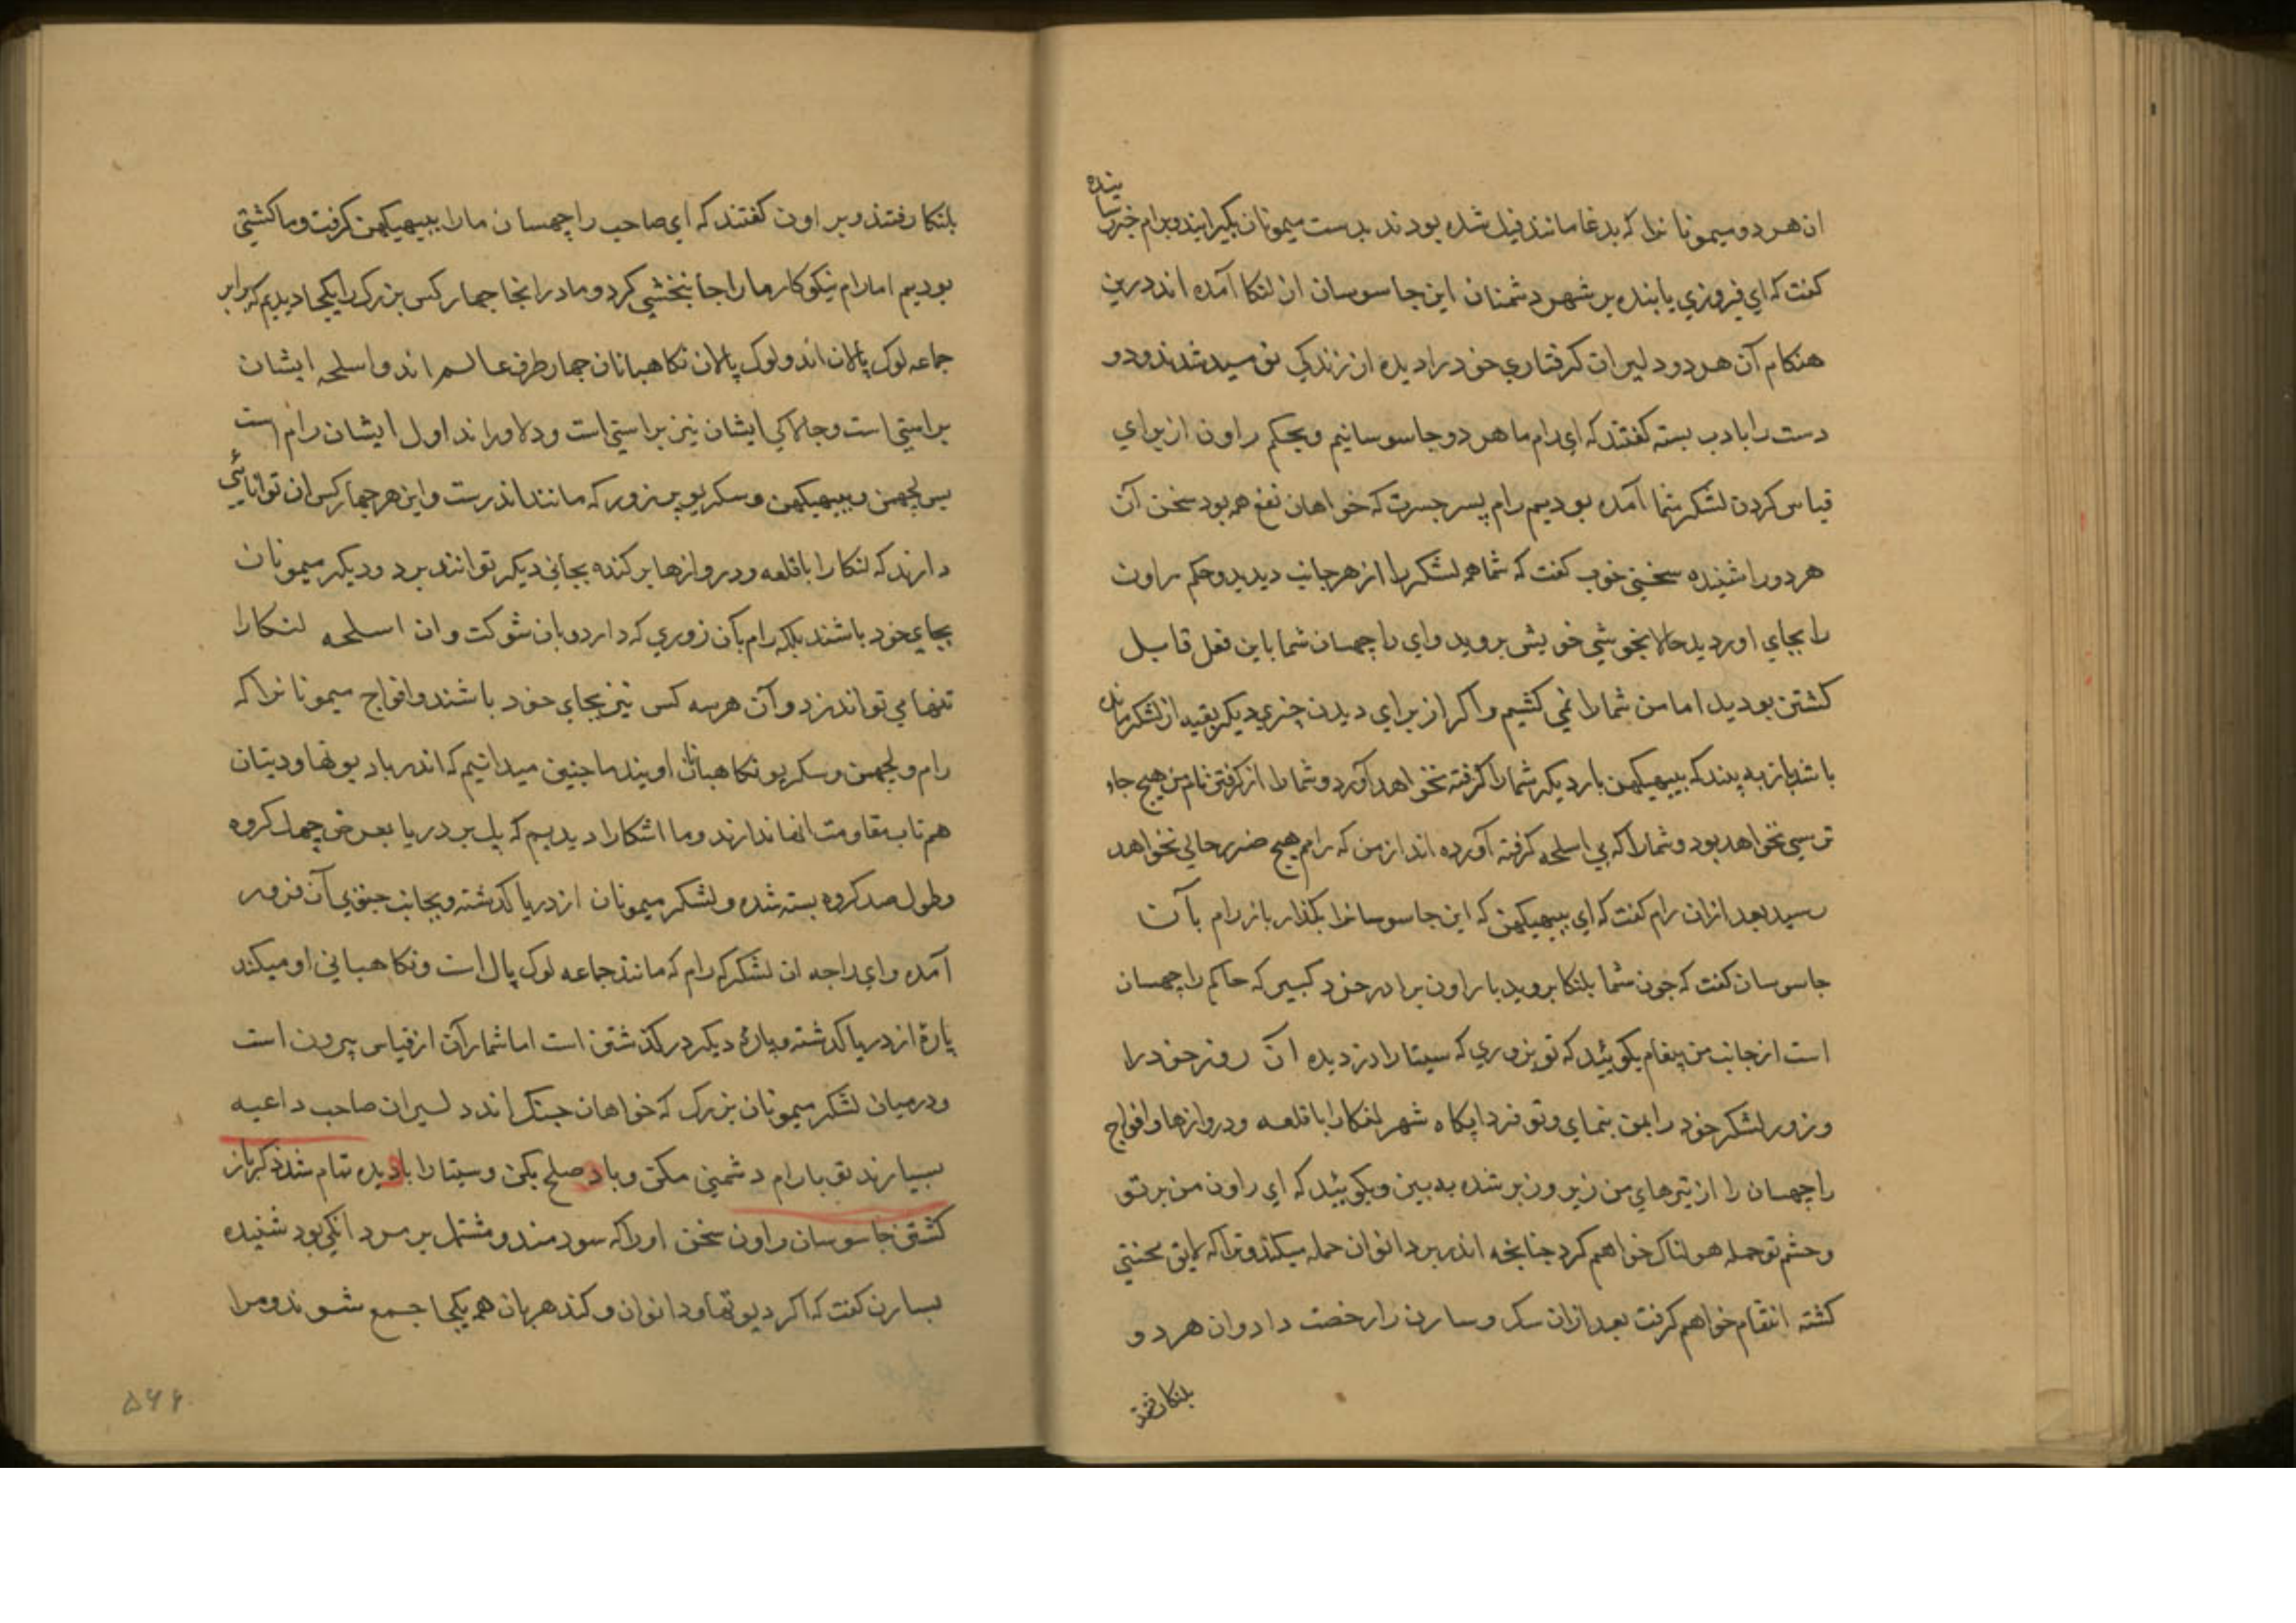 ان هر دو میمونانرا که بدغا مانند فیل شده بودند بدست میمونان بگیرانید و برام خبر رسانیده
کفت که ای فیروزی یابنده بر شهر دشمنان این جاسوسان از لنکا آمده اند درین
هنکام آن هر دو دلیران کرفتاری خود را دیده از زندکی نومید شدند و دو
دست را بادب بسته کفتند که ای رام ما هر دو جاسوسانیم و بحکم راون از برای
قیاس کردن لشکر شما آمده بودیم رام پسر جسرت که خواهان نفع همه بود سخن آن
هر دو را شنیده سخنی خوب کفت که شما همه لشکر را از هر جانب دیدید و حکم راون
را بجای اوردید حالا بخوشی خویش بروید و ای راچهسان شما باین فعل قابل
کشتن بودید اما من شما را نمی کشیم و اکر از برای دیدن چیزی دیکر بقیه از لشکر مانده
باشد باز به بینید که ببهیکهن بار دیکر شما را کرفته نخواهد آورد و شما را از کرفتن نام من هیچ جا
ترسی نخواهد بود و شما را که بی اسلحه کرفته آورده اند از من که رامم هیچ ضرر جانی نخواهد
رسید بعد ازان رام کفت که ای ببهیکهن که این جاسوسانرا بکذار باز رام بآن
جاسوسان کفت که چون شما بلنکا بروید با راون برادر خورد کبیر که حاکم راچهسان
است از جانب من پیغام بکوئید که تو بزوری که سیتا را دزدیده آن روز خود را
و زور لشکر خود را بمن بنمای و تو فردا پکاه شهر لنکا را با قلعه و دروازها و افواج
راچهسان را از تیرهای من زیر و زبر شده به بین و بکوئید که ای راون من بر تو
و حشم تو حمله هولناک خواهم کرد چنانچه اندر بر دانوان حمله میکند و ترا که لایق محنتی
کشته انتقام خواهم کرفت بعد ازان سک و سارن را رخصت داد و ان هر دو
بلنکا رفتند
بلنکا رفتند و بر اون کفتند که ای صاحب راچهسان ما را ببهیکهن کرفت و ما کشتنی
بودیم اما رام نیکوکار ما را جانبخشی کرد و ما در انجا چهار کس بزرک را یکجا دیدیم که برابر
جماعه لوک پالان اند و لوک پالان نکاهبانان چهار طرف عالم اند و اسلحه ایشان
براستی است و چالاکی ایشان نیز براستی است و دلاوراند اول ایشان رام است
پس لچهمن و ببهیکهن و سکریو پر زور که مانند اندرست و این هر چهار کس ان توانائی
دارند که لنکا را با قلعه و دروازها بر کنده بجائی دیکر توانند برد و دیکر میمونان
بجای خود باشند بلکه رام بآن زوری که دارد و بان شوکت و ان اسلحه لنکا را
تنها می تواند زد و آن هر سه کس نیز بجای خود باشند و افواج میمونانرا که
رام و لچهمن و سکریو نکاهبانان اویند ما چنین میدانیم که اندر با دیوتها و دیتان
هم تاب مقاومت انها ندارند و ما اشکارا دیدیم که پل بر دریا بعرض چهل کروه
و طول صد کروه بسته شده و لشکر میمونان از دریا کذشته و بجانب جنوبی آن فرود
آمده و ای راجه ان لشکر که رام که مانند جماعه لوک پال است و نکاهبانی او میکند
پارهٔ از دریا کذشته و پارهٔ دیکر در کذشتن است اما شمار آن از قیاس بیرون است
و درمیان لشکر میمونان بزرک که خواهان جنک اند دلیران صاحب داعیه
بسیارند تو با رام دشمنی مکن و باو صلح بکن و سیتا را باو بده تمام شد ذکر باز
کشتن جاسوسان راون سخن او را که سودمند و مشتمل بر مردانکی بود شنیده
بسارن کفت که اکر دیوتها و دانوان و کندهربان همه یکجا جمع شوند و مرا
۵۴۶